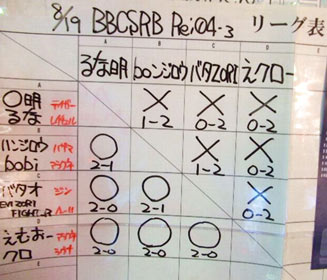 8/19 BBCSRB Rei04-3 リーグ表
A B C D
るな明 boンジロウ バタZORI えクロー
A
○明 テイガー
るな レイチェル
× 1-2 × 0-2 × 0-2
B
ハンジロウ ハザマ
bobi アラクネ
○ 2-1 × 1-2 × 0-2
C
バタオ ジン
EVIZORI FIGHT-R
○ 2-0 ○ 2-1 × 0-2
D
えむおー アラクネ
クロ
○ 2-0 ○ 2-0 ○ 2-0